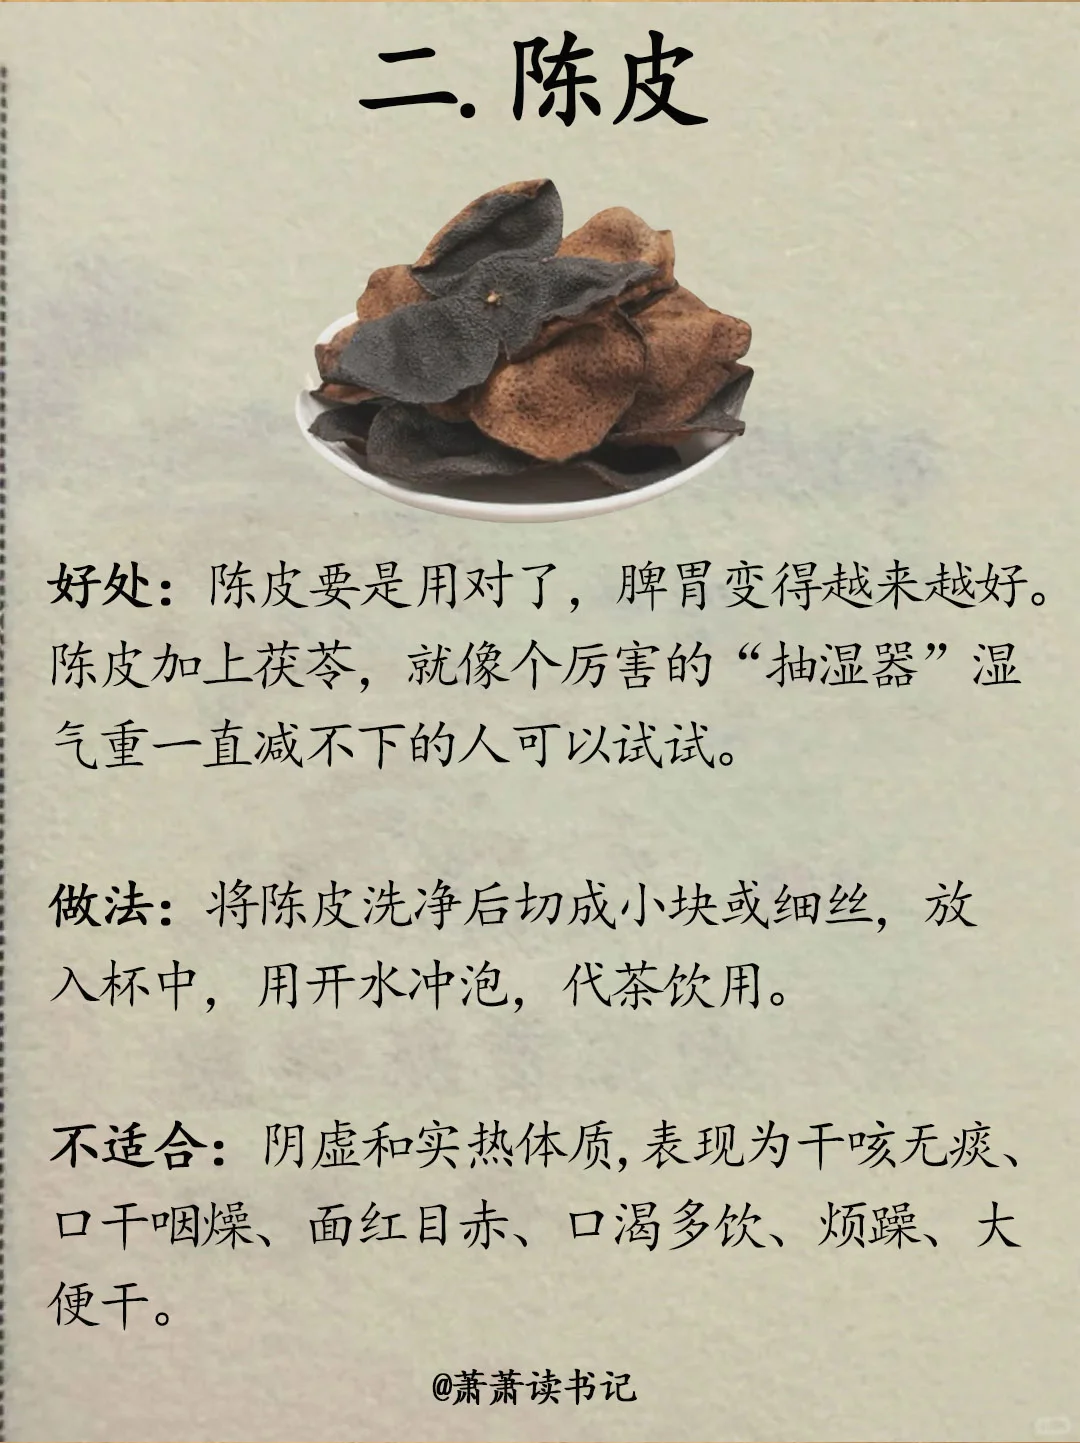 二.陈皮
好处：陈皮要是用对了，脾胃变得越来越好。
陈皮加上茯苓，就像个厉害的“抽湿器”湿
气重一直减不下的人可以试试。
做法：将陈皮洗净后切成小块或细丝，放
入杯中，用开水冲泡，代茶饮用。
不适合：阴虚和实热体质,表现为干咳无痰、
口干咽燥、面红目赤、口渴多饮、烦躁、大
便干。
@萧萧读书记